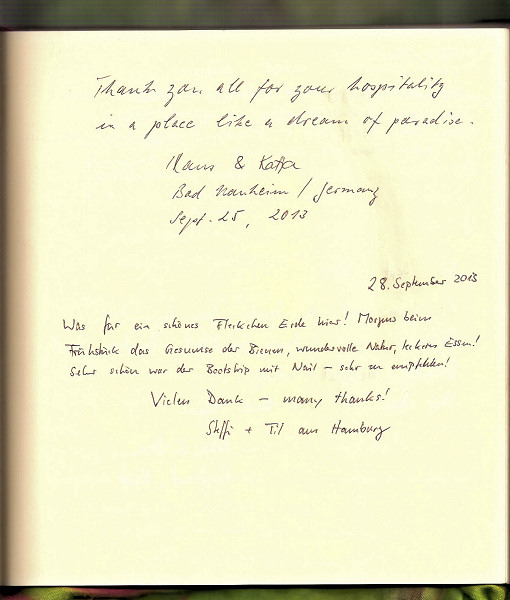 Thank you all for your hospitality
in a place like a dream of paradise.
Klaus & Katja
Bad Nauheim / Germany
Sept. 25, 2013
28. September 2013
Was für ein schönes Fleckchen Erde hier! Morgens beim
Frühstück das Gesumse der Bienen, wundervolle Natur, leckeres Essen!
Sehr schön war der Bootstrip mit Nail – sehr zu empfehlen!
Vielen Dank – many thanks!
Steffi + Til aus Hamburg